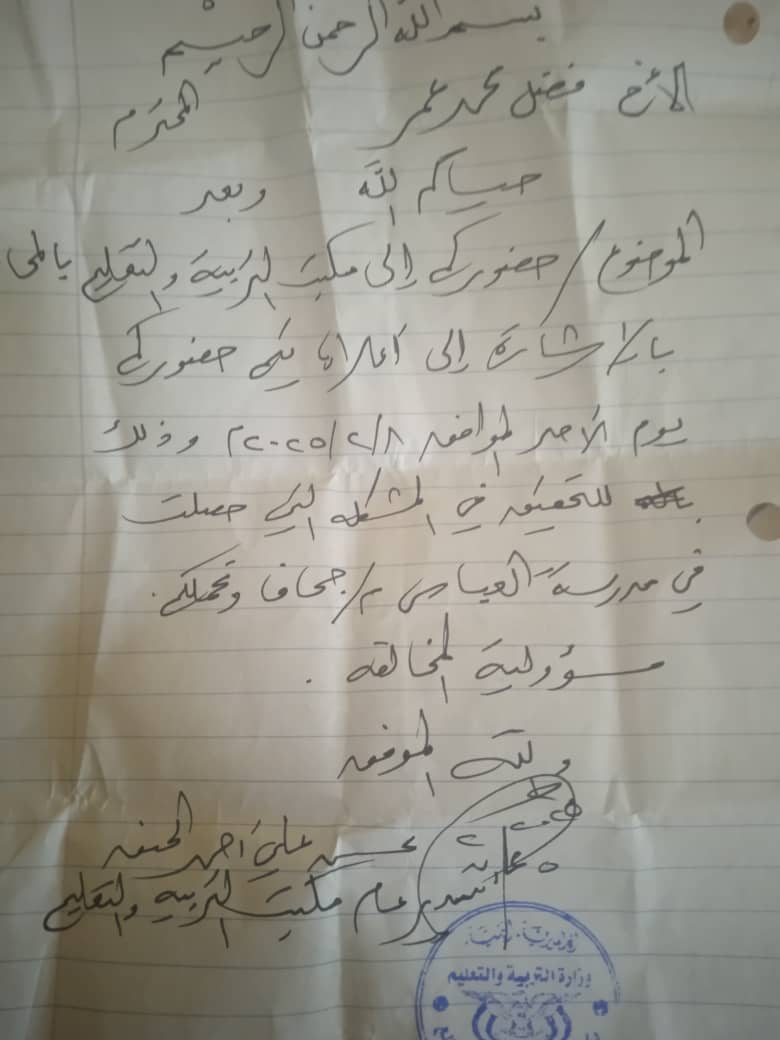 بسم الله الرحمن الرحيم
الأخ فضل محمد عمر المحترم
حياكم الله وبعد
الموضوع / حضوركم إلى مكتب التربية والتعليم
بالإشارة إلى أعلاه حضوركم
يوم الأحد الموافق ٢٠٢٥/٢/٨م وذلك
للتحقيق في المشكلة التي حصلت
في مدرسة العباس م/جحاف ونحملكم
مسؤولية المخالفة .
والله الموفق
علي احمد
مدير عام مكتب التربية والتعليم
وزارة التربية والتعليم